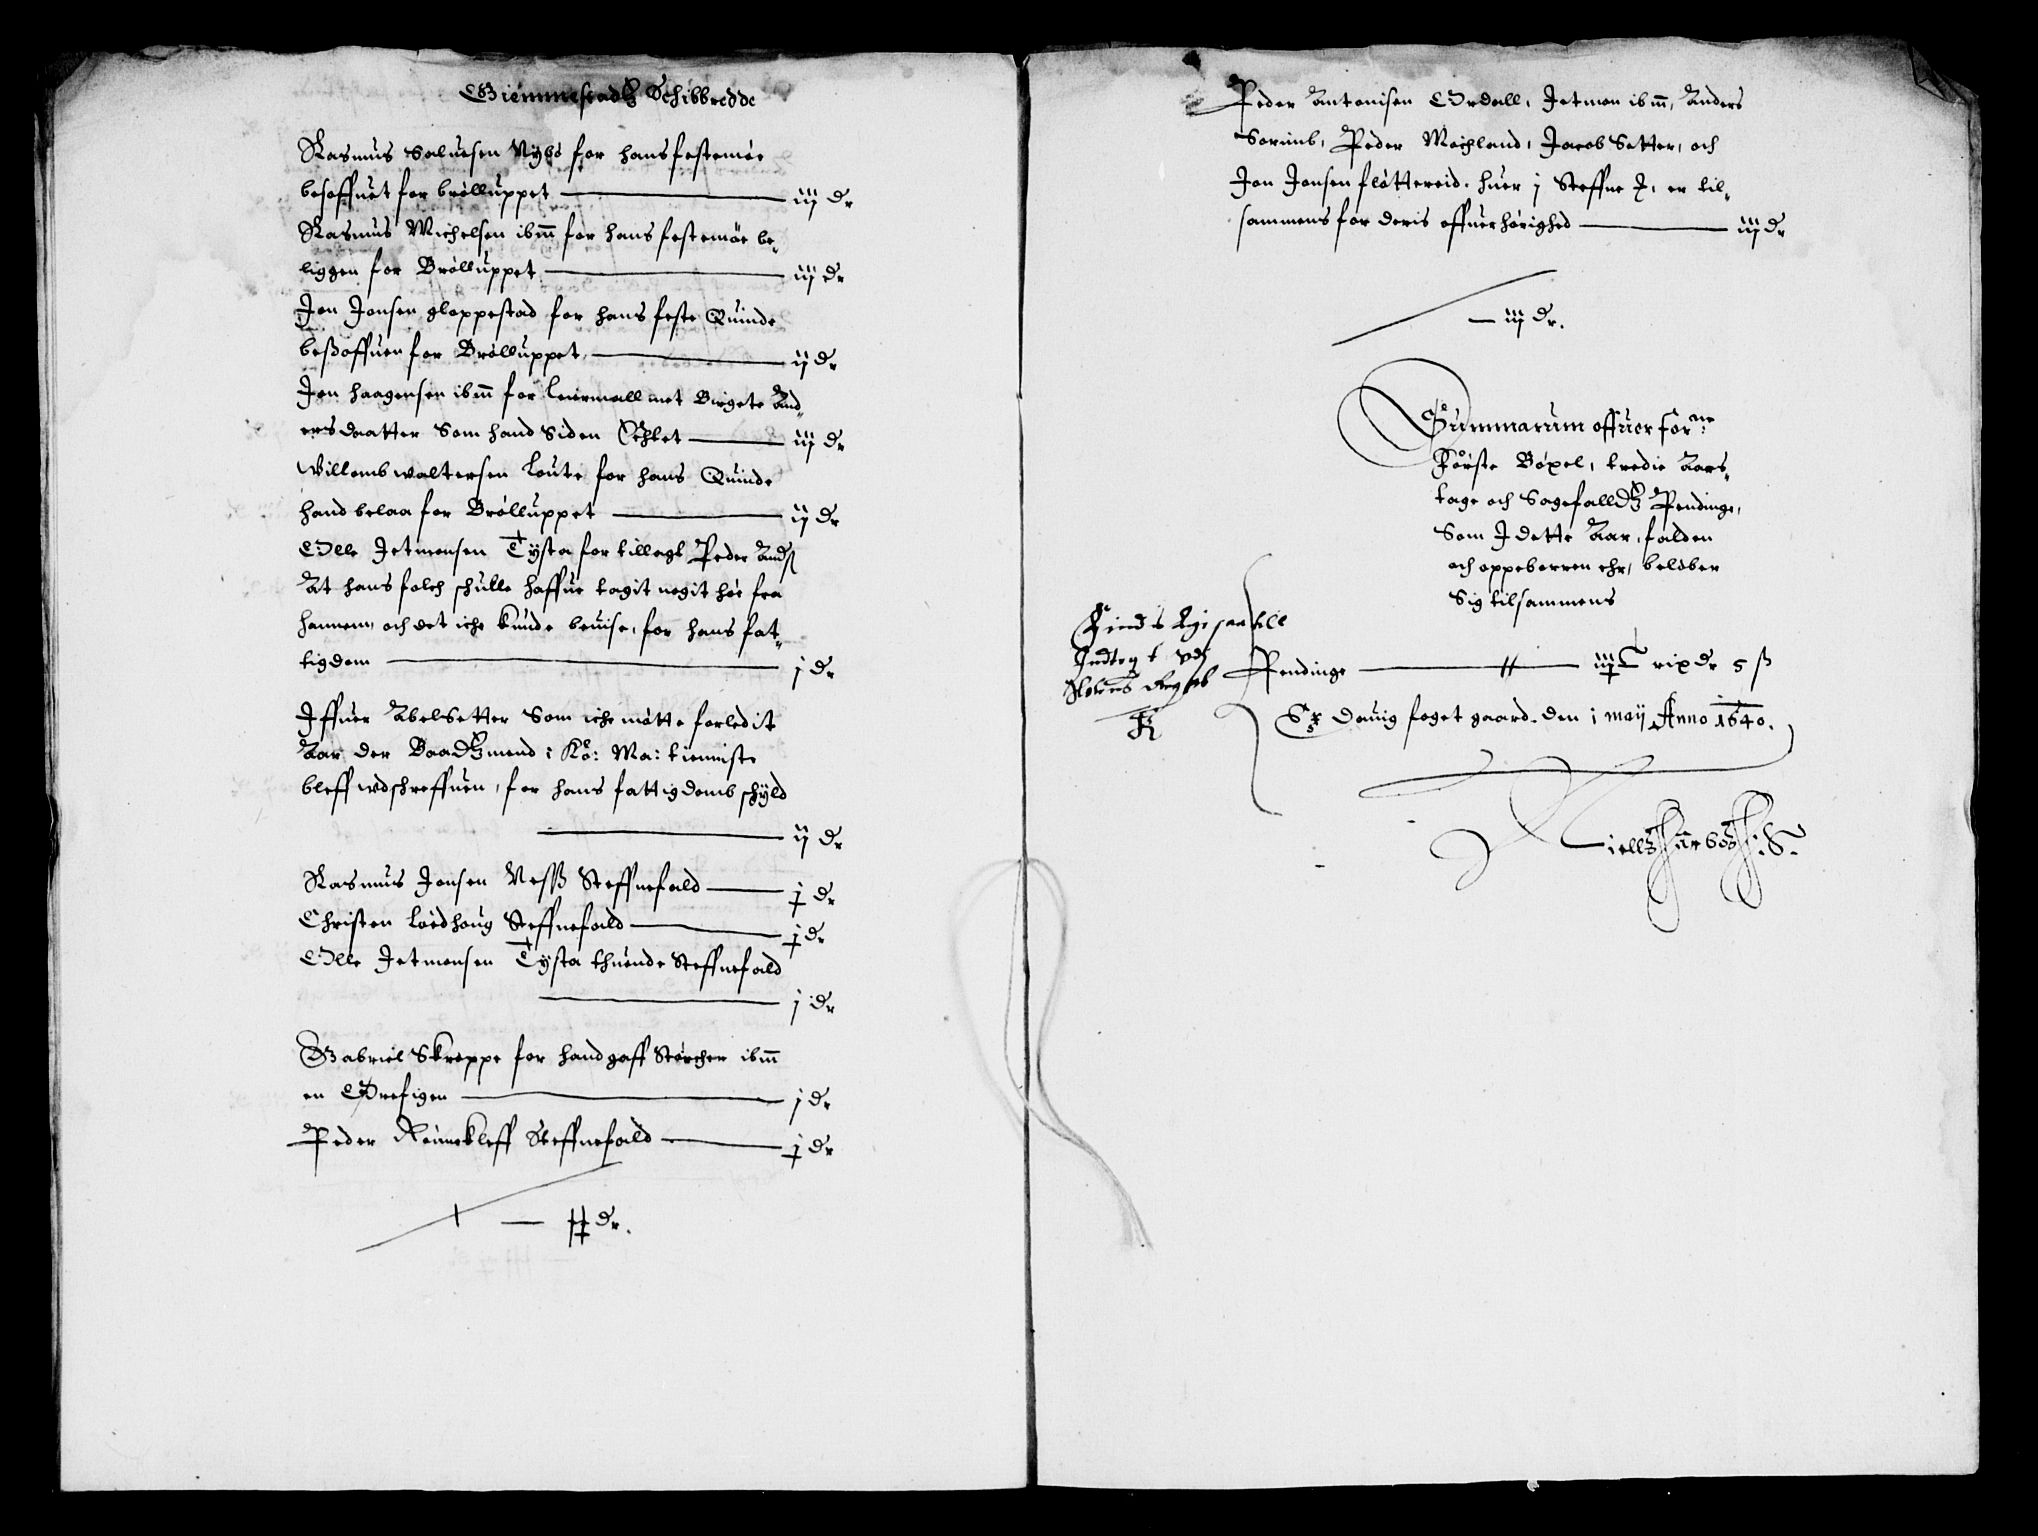 Giemmestadtz Schibbredde
Rasmus Saluesen Nybø for hans festemøe
besoffuet for brølluppet iij dr
Rasmus Michelsen ibm for hans festemøe be-
liggen for Brølluppet iij dr
Jon Jonsen gloppestad for hans feste Quinde
beßoffuen for Brølluppet ij dr
Jon haagensen ibm for Leiermall met Birgete And-
ersdaatter Som hand Siden Echtet iij dr
Willemb waltersen Loute for hans Quinde
hand belaa for Brølluppet ij dr
Olle Jetmonsen Tysta for tillagt Peder Anders
At hans folch schulle haffue tagit nogit høe fra
hannem, och det iche kunde beuise, for hans fat-
tigdom j dr
Iffuer Abelsetter Som iche møtte forledit
Aar der Baadtzmend i Ko: Ma: tienniste
bleff wdschreffuen, for hans fattigdomb schyld
ij dr
Rasmus Jonsen Neß Steffnefald j dr
Christen Lødhoug Steffnefald j dr
Olle Jetmonsen Tysta thuende Steffnefald
j dr
Gabriel Skroppe for hand gaff Størcher ibm
en Ørefigen j dr
Peder Rennekleff Steffnefald j dr
dr.
Peder Antonisen Ordall, Jetmon ibm, Anders
Sørimb, Peder Mochland, Jacob Setter, och
Jon Jonsen fløttereid, huer j Steffne er til-
sammens for deris offuerhørighed iij dr
iij dr.
Summarum offuer forne
Første Bøxel, tredie Aars-
tage och Sagefalldtz Pendinge,
Som I dette Aar, falden
och oppebørren ehr, beløber
Sig tilsammens
Pendinge rixdr 5 ß
Findis
Indtegt vdj
Ex Dauig foget gaard. den 1 maij Anno 1640.
Niellß